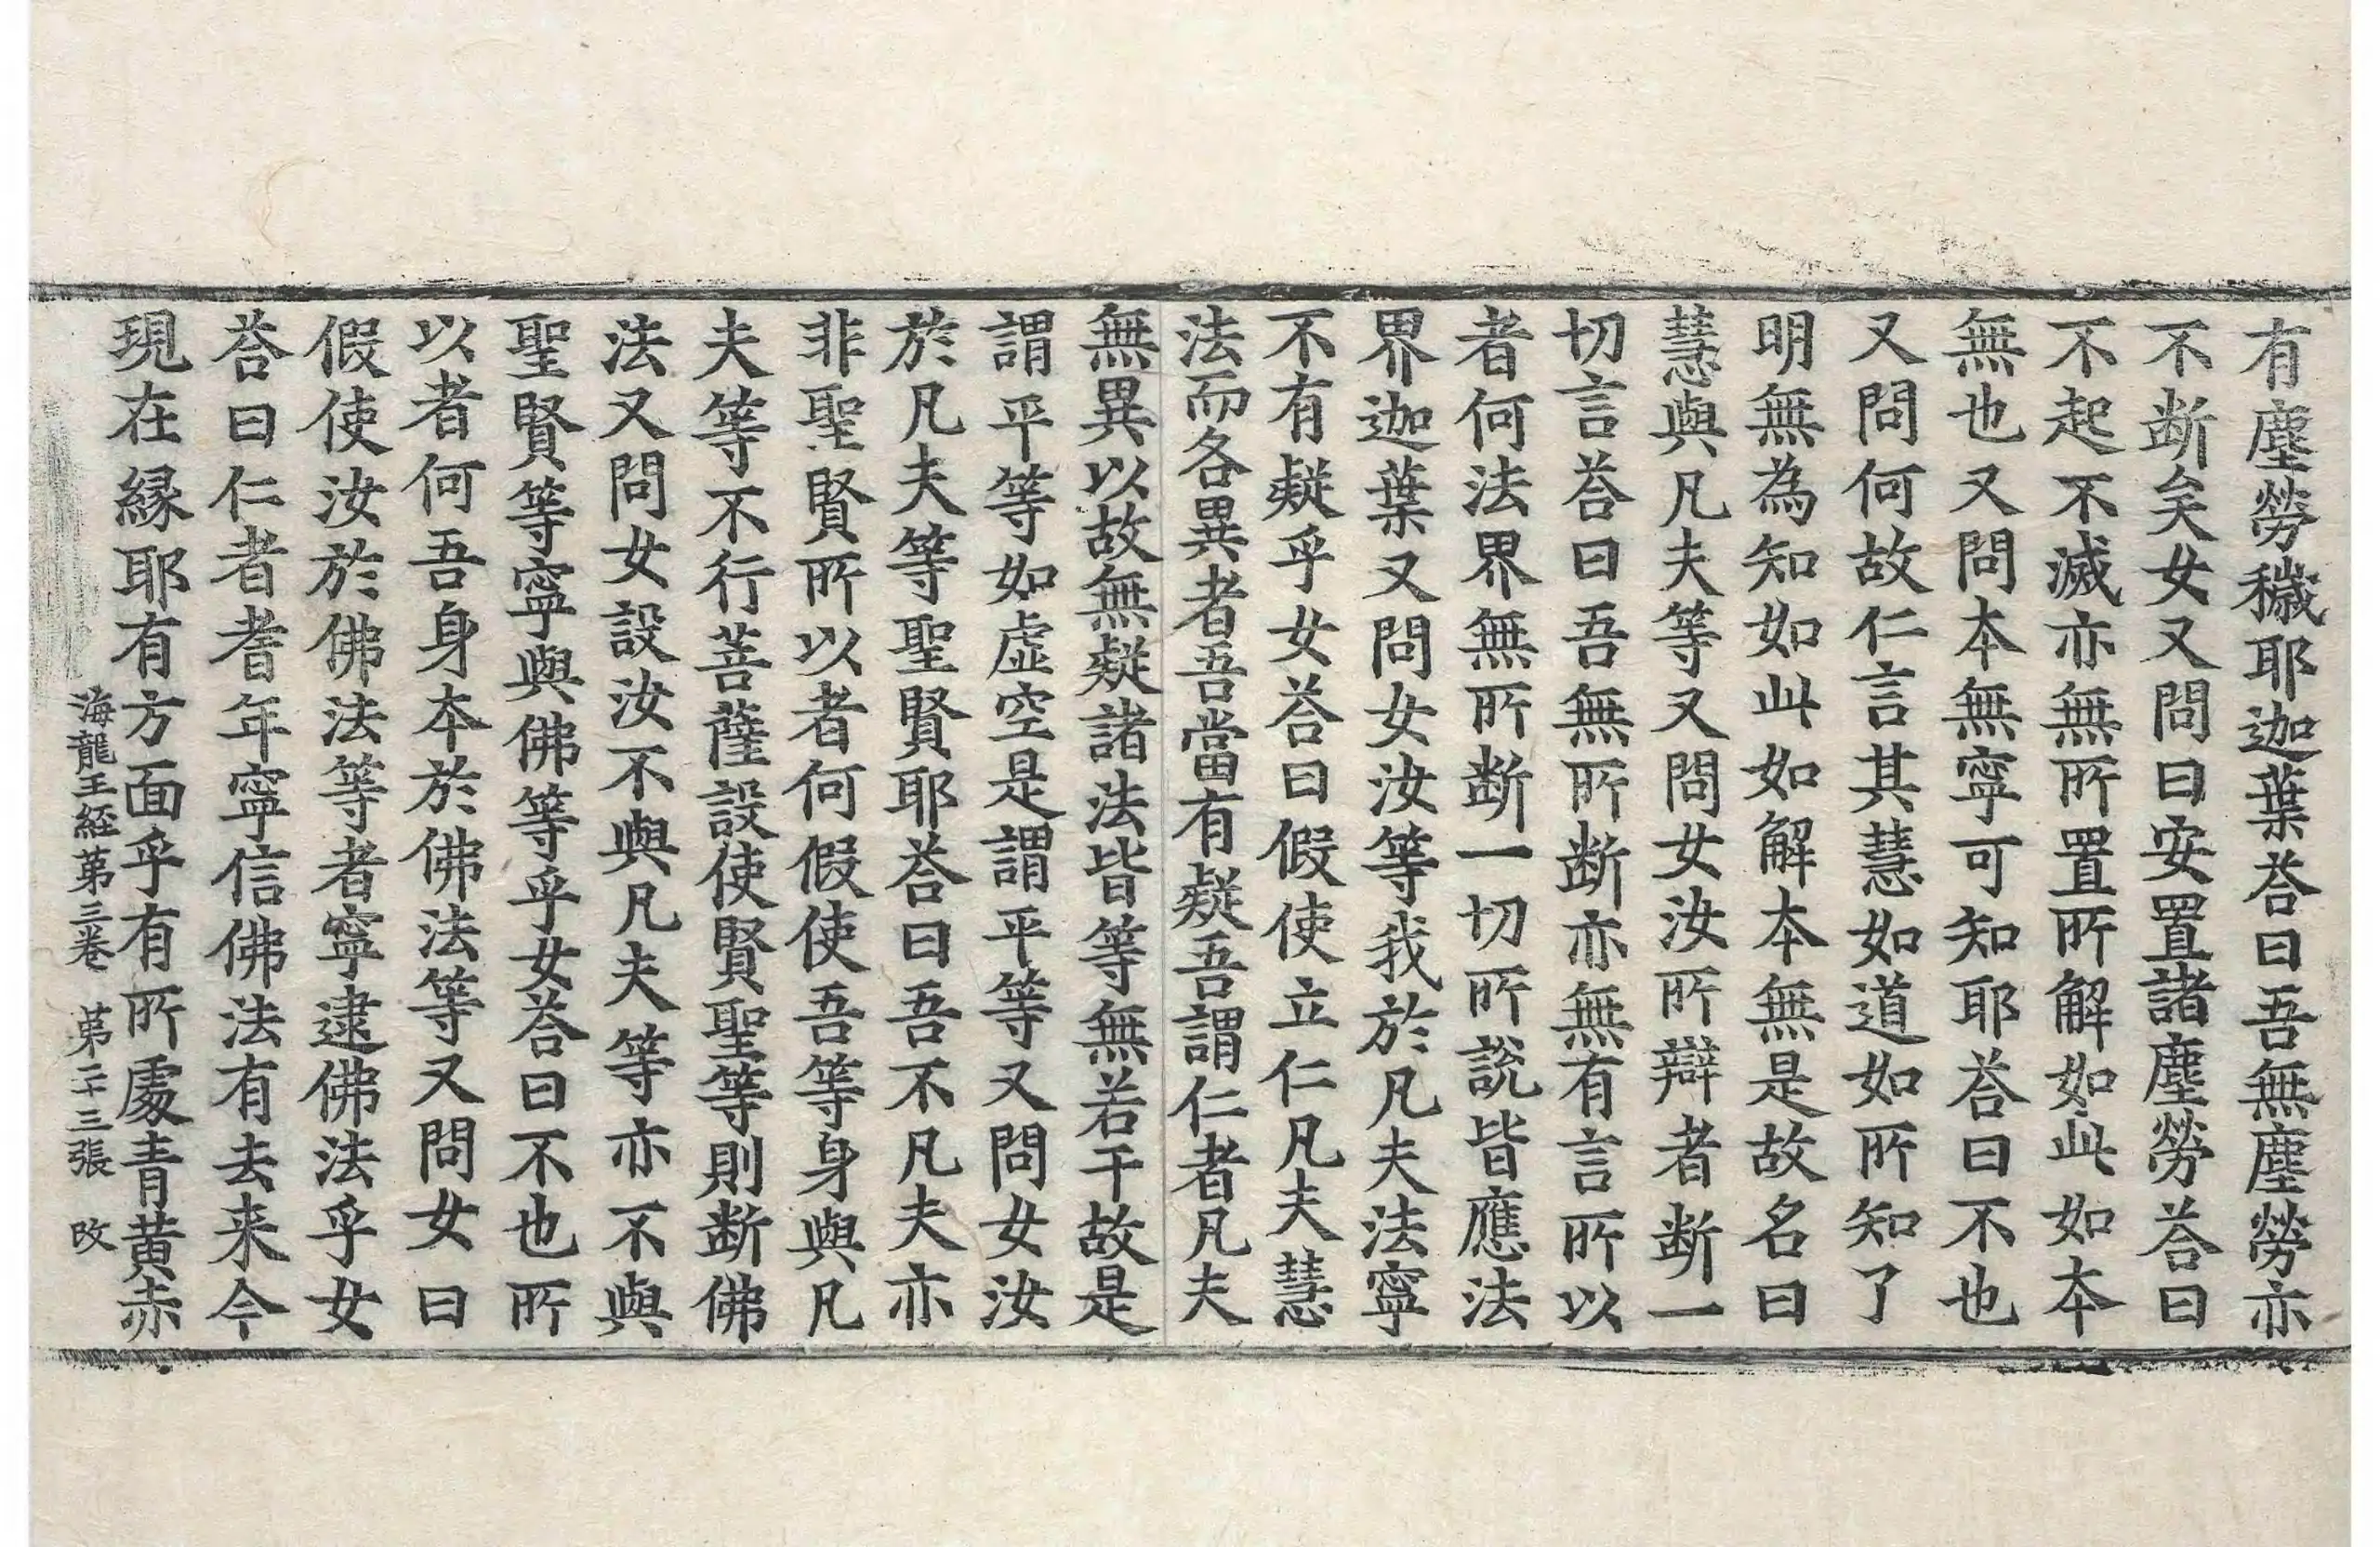 有塵勞穢耶迦葉荅曰吾無塵勞亦
不断矣女又問曰安置諸塵勞荅曰
不起不滅亦無所置所解如此如本
無也又問本無寧可知耶荅曰不也
又問何故仁言其慧如道如所知了
明無為知如此如解本無是故名曰
慧與凡夫等又問女汝所辯者断一
切言荅曰吾無所断亦無有言所以
者何法界無所断一切所說皆應法
界迦葉又問女汝等我於凡夫法寧
不有疑乎女荅曰假使立仁凡夫慧
法而各異者吾當有疑吾謂仁者凡夫
無異以故無疑諸法皆等無若干故是
謂平等如虛空是謂平等又問女汝
於凡夫等聖賢耶荅曰吾不凡夫亦
非聖賢所以者何假使吾等身與凡
夫等不行菩薩設使賢聖等則断佛
法又問女設汝不與凡夫等亦不與
聖賢等寧與佛等乎女荅曰不也所
以者何吾身本於佛法等又問女曰
假使汝於佛法等者寧逮佛法乎女
荅曰仁者耆年寧信佛法有去来今
現在縁耶有方面乎有所處青黃赤
海龍王経第三卷 第二十三張 改